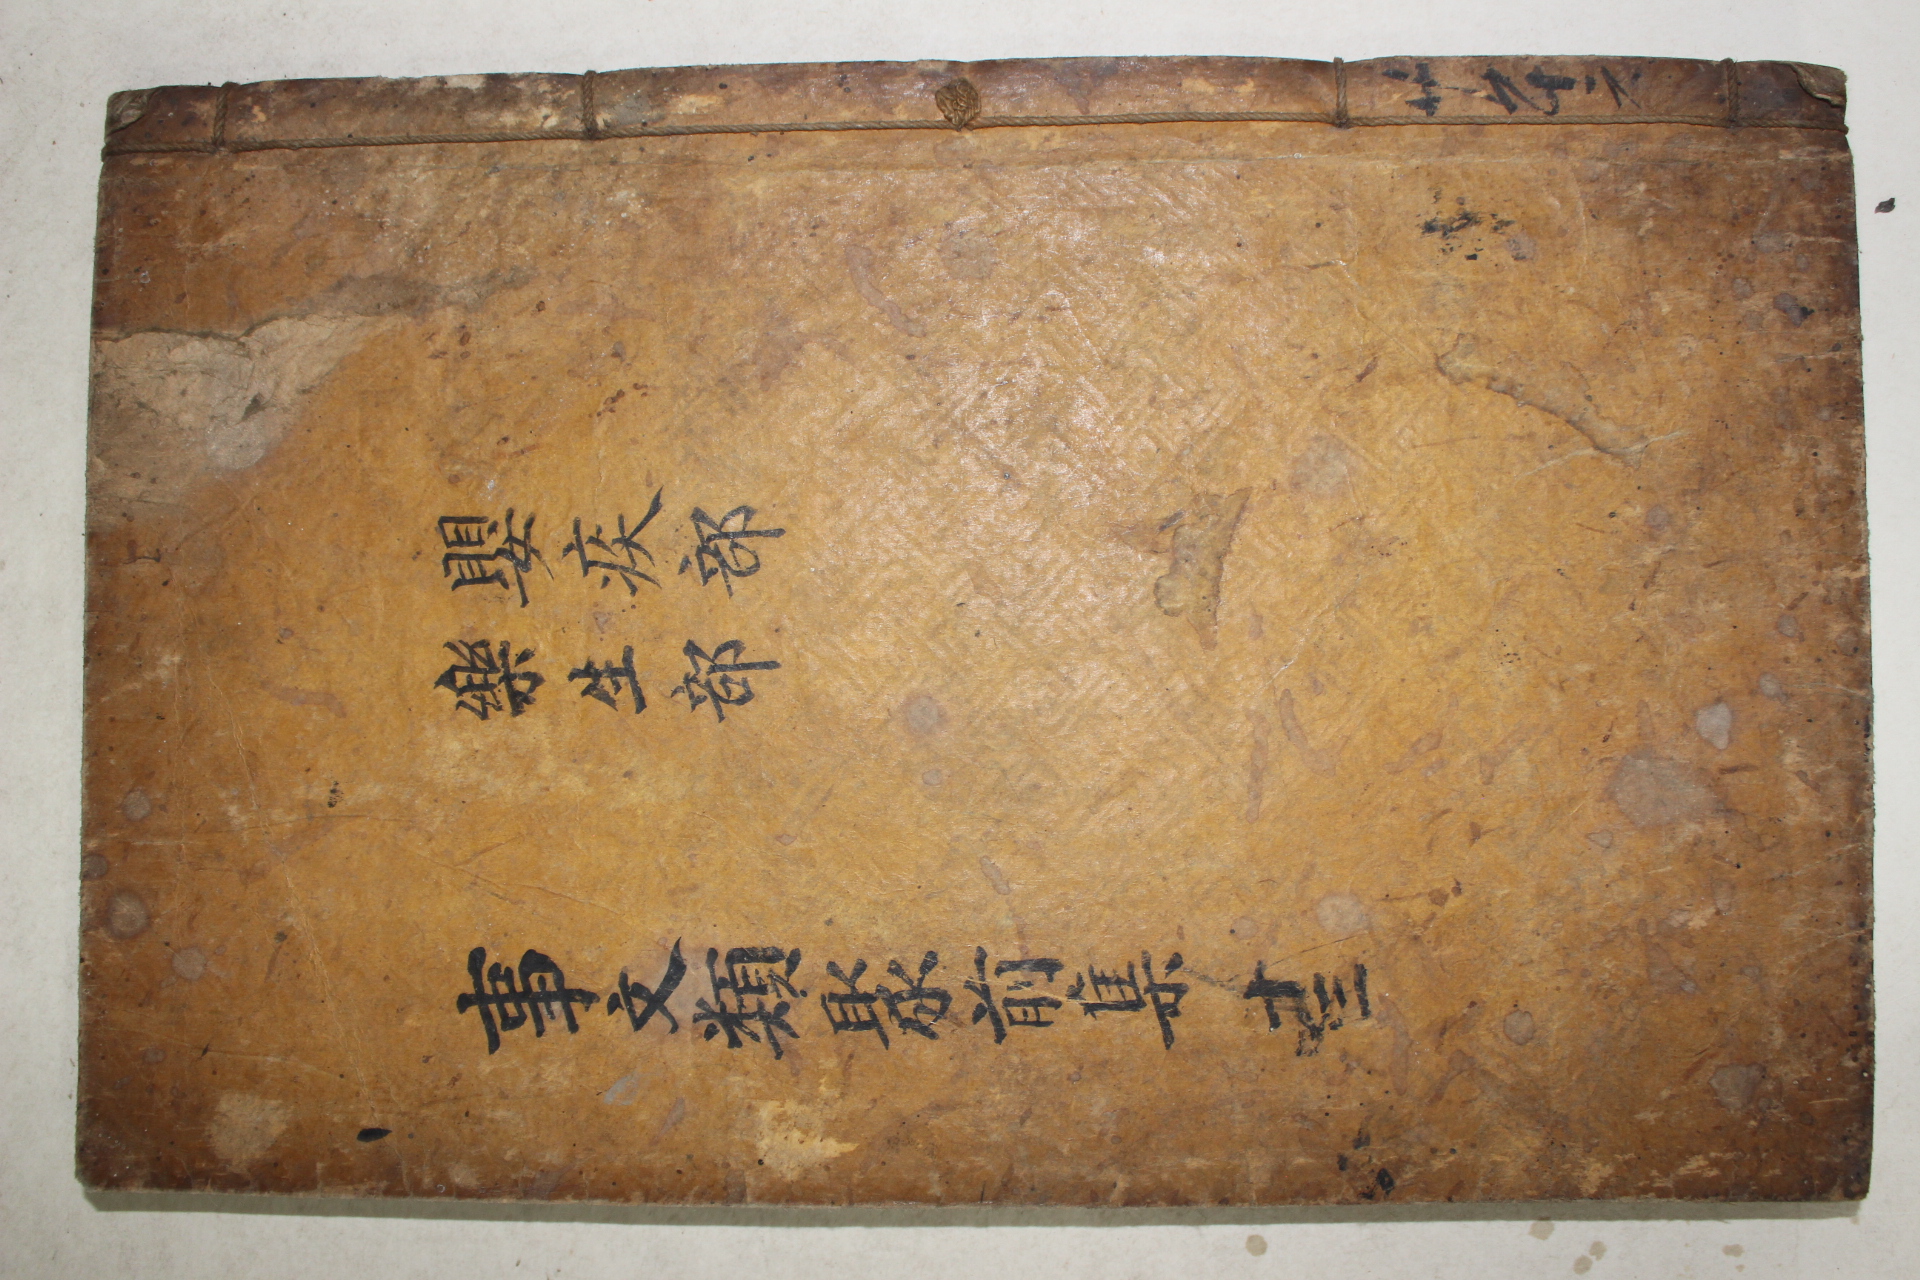 嬰疾部
樂生部
事文類聚前集 十三